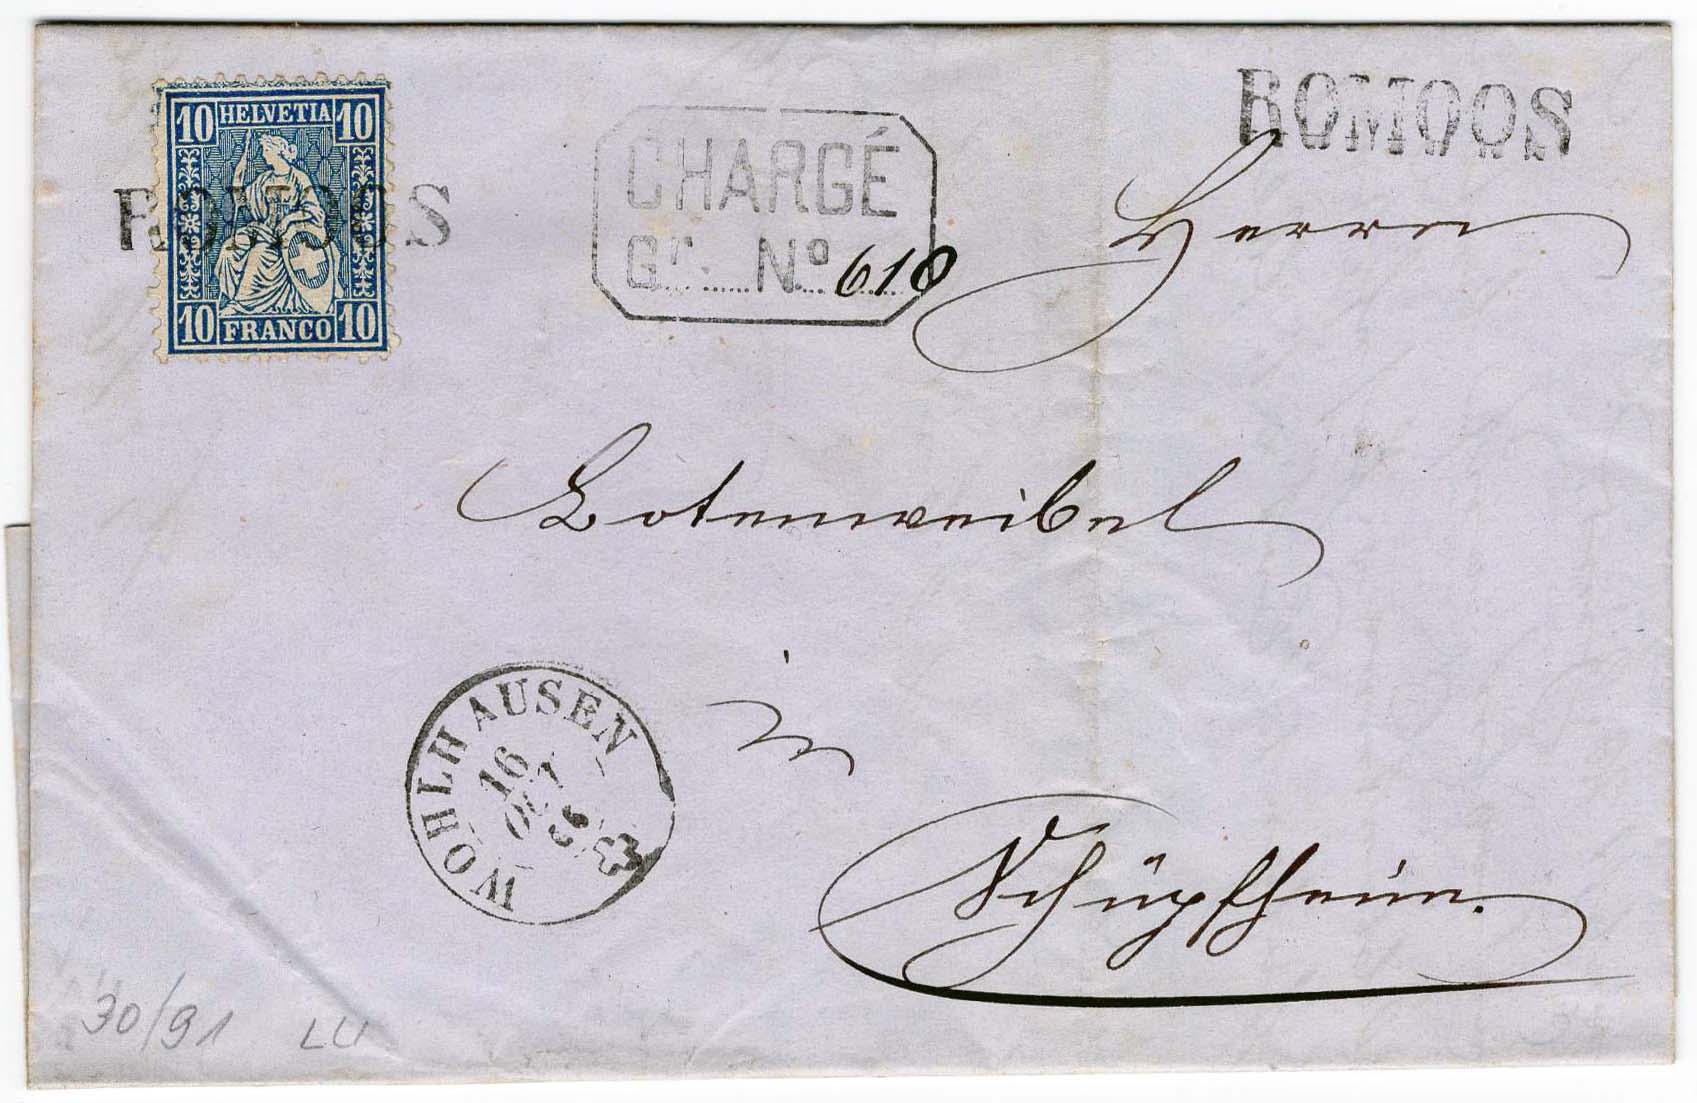 10 HELVETIA 10
ROMOOS
10 FRANCO 10
CHARGÉ
Gr. Nº 610
ROMOOS
Herrn
Botenweibel
in
Schüpfheim.
WOHLHAUSEN
16
OCT
66
30/91 LU